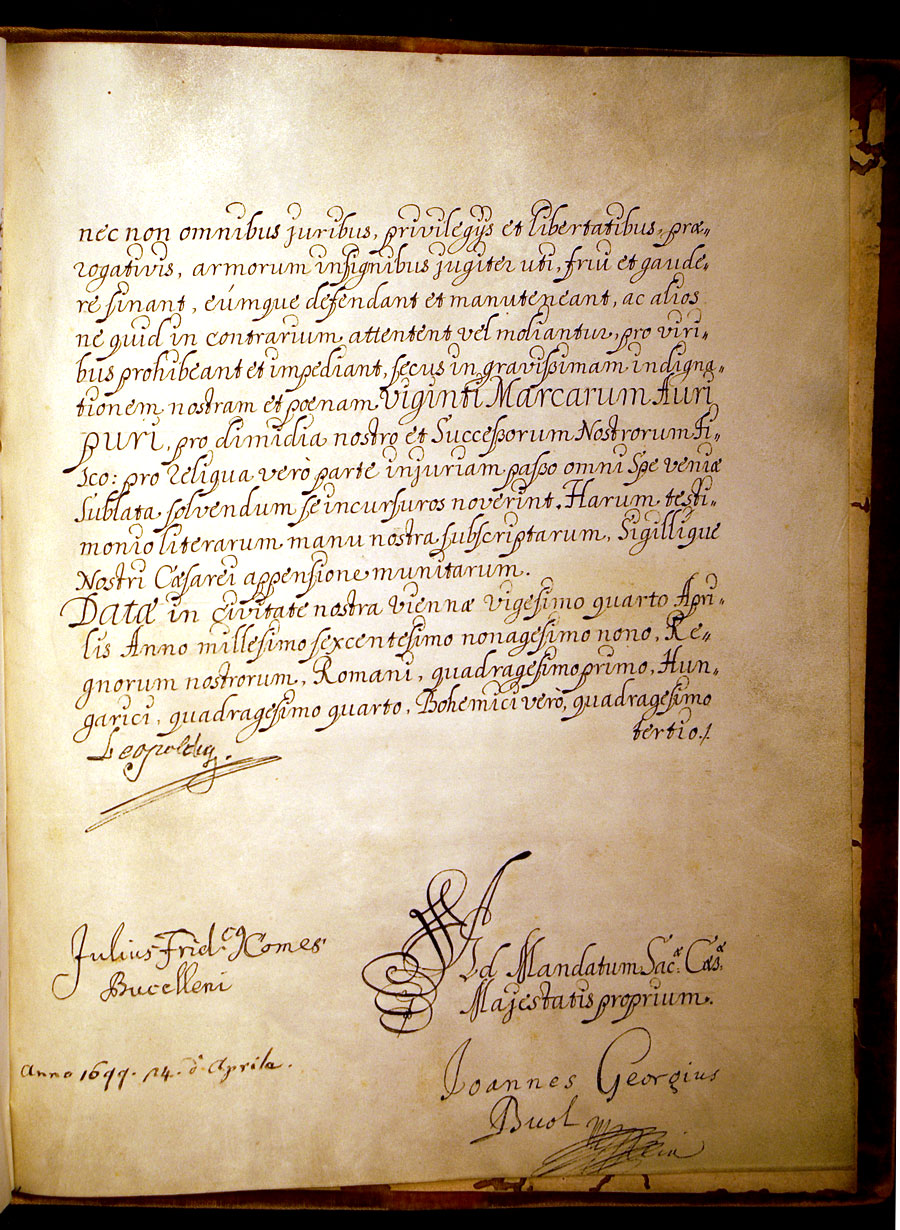 nec non omnibus juribus, privilegijs et libertatibus, præ-
rogativis, armorum insignibus jugiter uti, frui et gaude-
re sinant, eúmque defendant et manuteneant, ac alios
ne quid in contrarium attentent vel moliantur, pro viri-
bus prohibeant et impediant, secus in gravissimam indigna-
tionem nostram et poenam viginti Marcarum Auri
puri, pro dimidia nostro et Successorum Nostrorum Fi-
sco: pro reliqua verò parte injuriam passo omni Spe veniæ
Sublata solvendum se incursuros noverint. Harum testi-
monio literarum manu nostra subscriptarum, Sigillique
Nostri Cæsarei appensione munitarum.
Datæ in Civitate nostra Viennæ vigesimo quarto Apri-
lis Anno millesimo sexcentesimo nonagesimo nono, Re-
gnorum nostrorum, Romani, quadragesimo primo, Hun-
garici, quadragesimo quarto, Bohemici verò, quadragesimo
tertio./.
Leopoldus.
Julius Frid.cus Comes
Bucelleni
Ad Mandatum Sac.æ Cæs.æ
Majestatis proprium.
Anno 1699. 24. d. Aprila.
Joannes Georgius
Buol